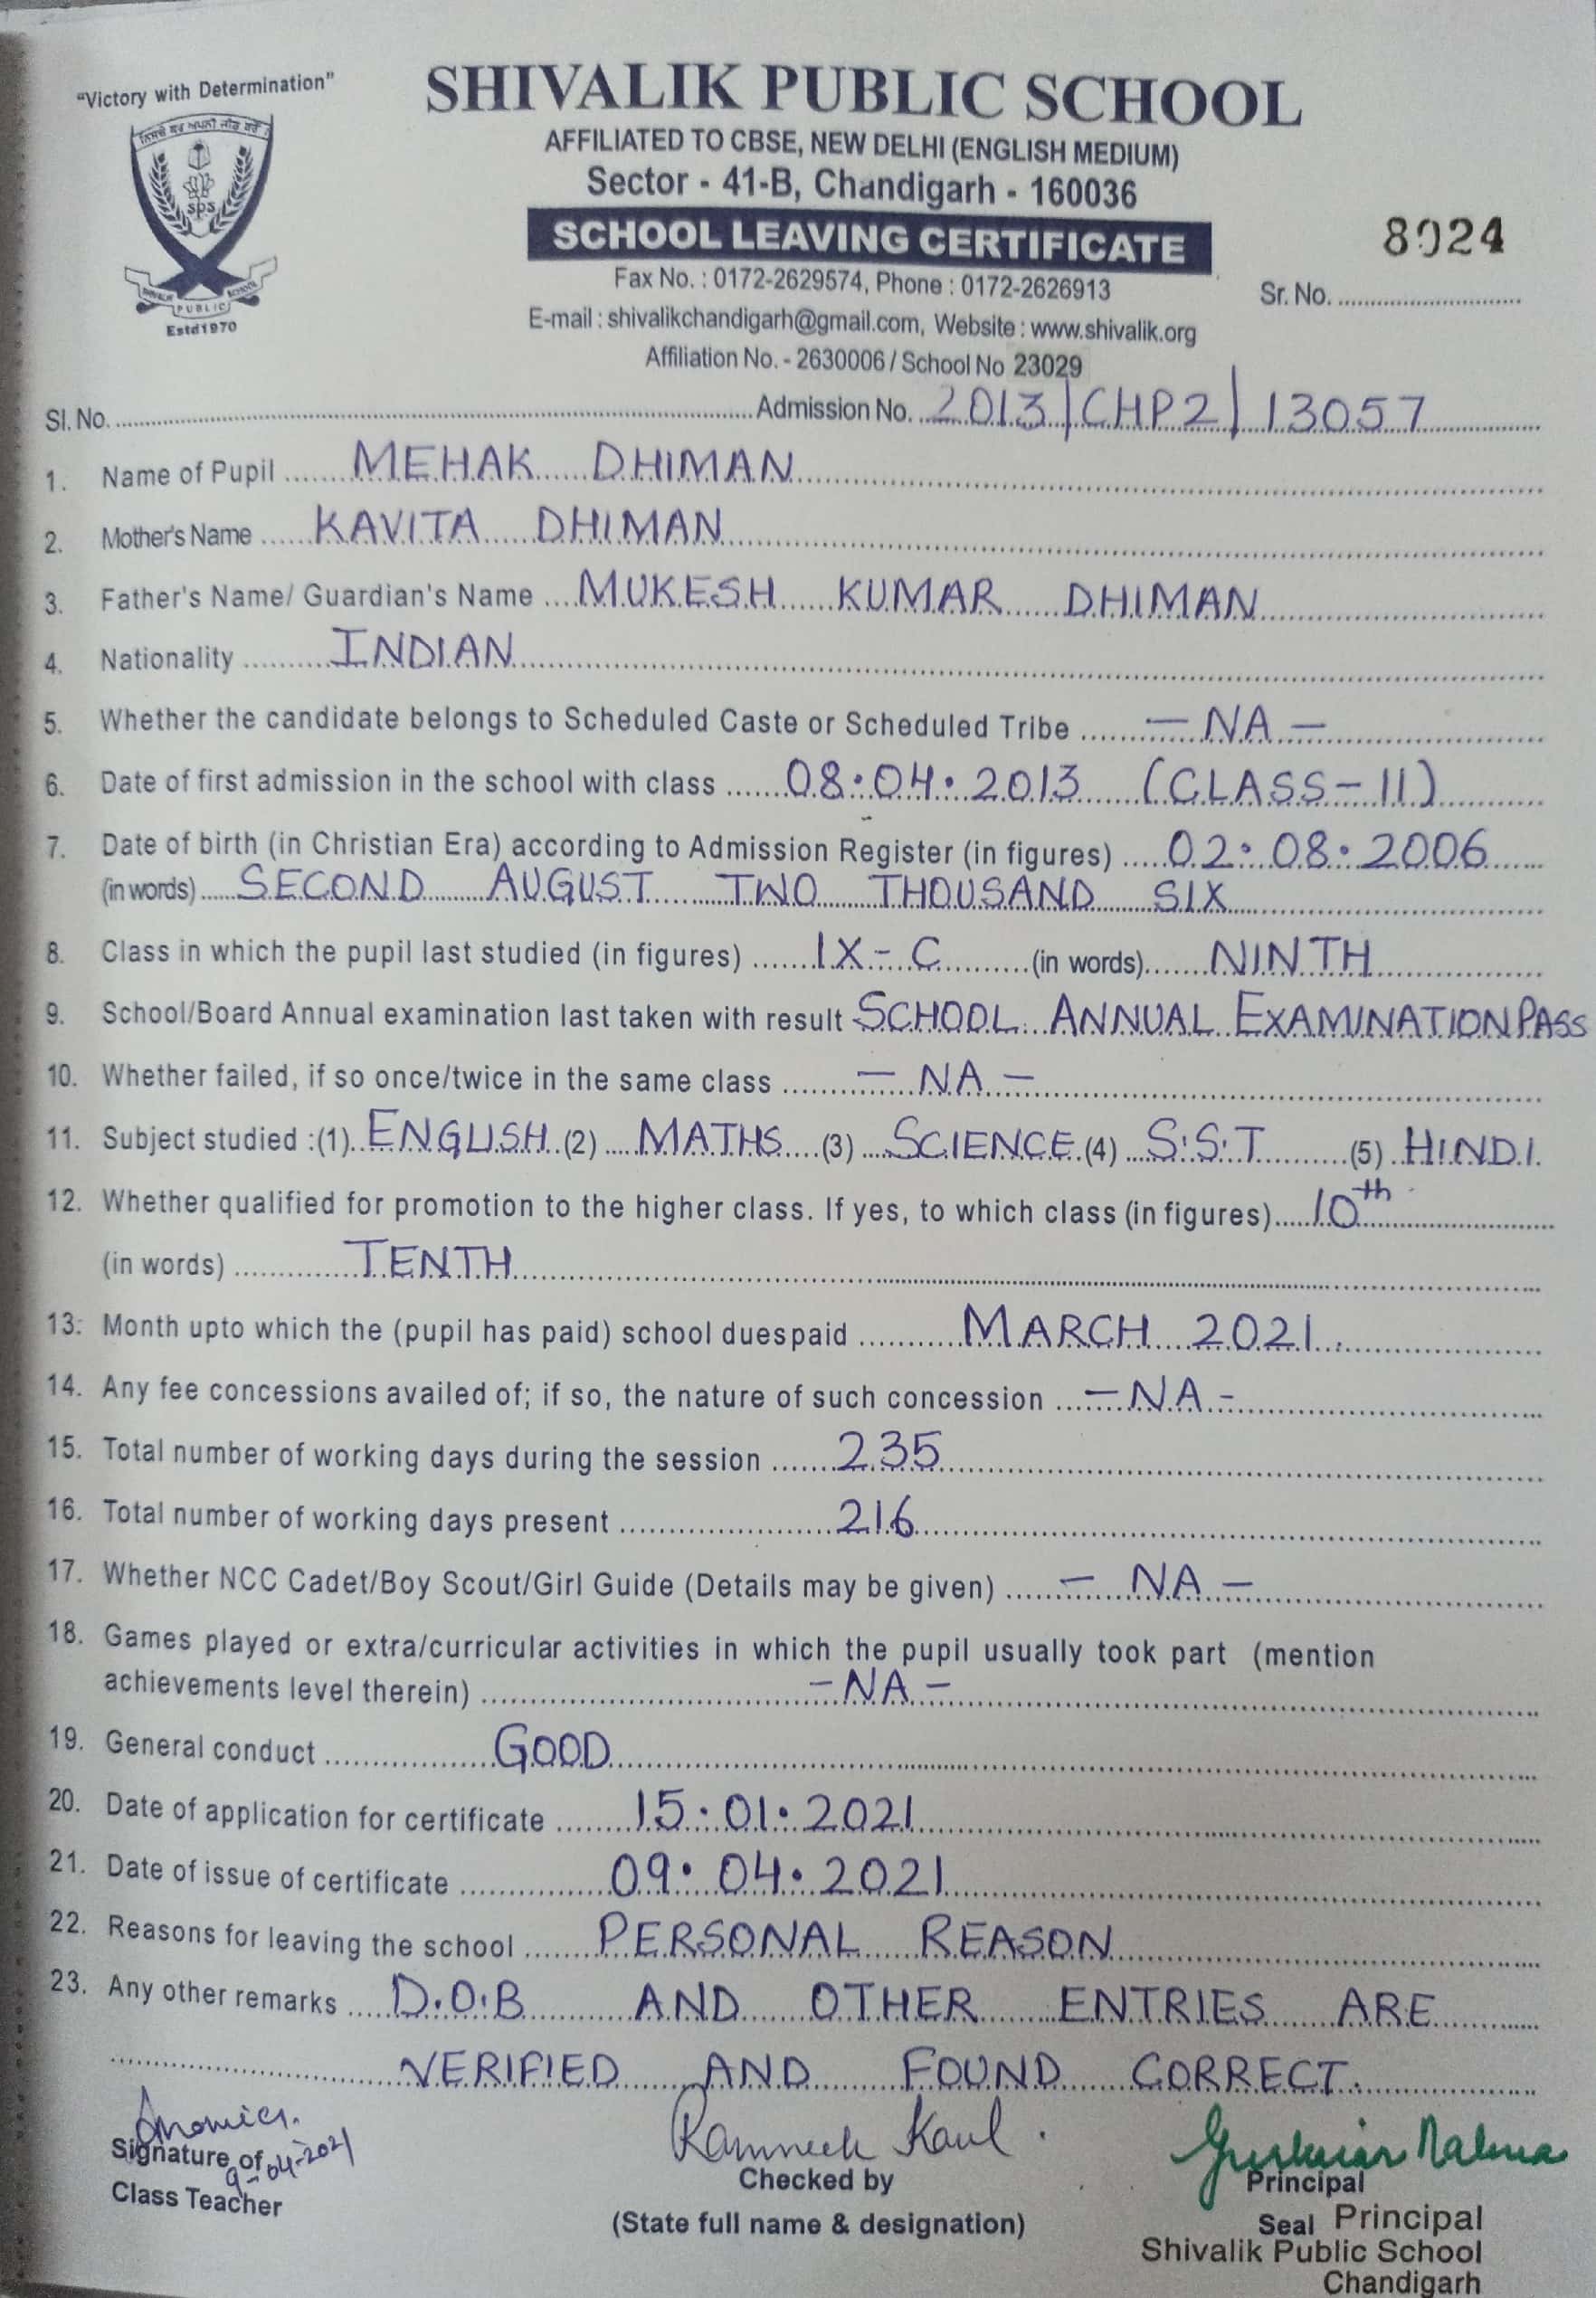 "Victory with Determination"
SHIVALIK PUBLIC SCHOOL
AFFILIATED TO CBSE, NEW DELHI (ENGLISH MEDIUM)
Sector - 41-B, Chandigarh - 160036
SCHOOL LEAVING CERTIFICATE
8024
Fax No. : 0172-2629574, Phone : 0172-2626913
Sr. No. ............................
E-mail : shivalikchandigarh@gmail.com, Website : www.shivalik.org
Affiliation No. - 2630006 / School No 23029
sps
SHIVALIK PUBLIC SCHOOL
Estd 1970
Sl. No. .......... Admission No. 2013/CHP2/13057
1. Name of Pupil MEHAK DHIMAN
2. Mother's Name KAVITA DHIMAN
3. Father's Name/ Guardian's Name MUKESH KUMAR DHIMAN
4. Nationality INDIAN
5. Whether the candidate belongs to Scheduled Caste or Scheduled Tribe — NA —
6. Date of first admission in the school with class 08.04.2013 (CLASS-II)
7. Date of birth (in Christian Era) according to Admission Register (in figures) 02.08.2006
(in words) SECOND AUGUST TWO THOUSAND SIX
8. Class in which the pupil last studied (in figures) IX - C (in words) NINTH
9. School/Board Annual examination last taken with result SCHOOL ANNUAL EXAMINATION PASS
10. Whether failed, if so once/twice in the same class — NA —
11. Subject studied :(1) ENGLISH (2) MATHS (3) SCIENCE (4) S.S.T (5) HINDI
12. Whether qualified for promotion to the higher class. If yes, to which class (in figures) 10th
(in words) TENTH
13. Month upto which the (pupil has paid) school duespaid MARCH 2021.
14. Any fee concessions availed of; if so, the nature of such concession — NA -
15. Total number of working days during the session 235
16. Total number of working days present 216
17. Whether NCC Cadet/Boy Scout/Girl Guide (Details may be given) — NA —
18. Games played or extra/curricular activities in which the pupil usually took part (mention
achievements level therein) - NA -
19. General conduct GOOD
20. Date of application for certificate 15.01.2021
21. Date of issue of certificate 09.04.2021
22. Reasons for leaving the school PERSONAL REASON
23. Any other remarks D.O.B AND OTHER ENTRIES ARE
VERIFIED AND FOUND CORRECT.
Signature of
9-04-2021
Class Teacher
Ramneek Kaul.
Checked by
(State full name & designation)
Principal
Seal Principal
Shivalik Public School
Chandigarh